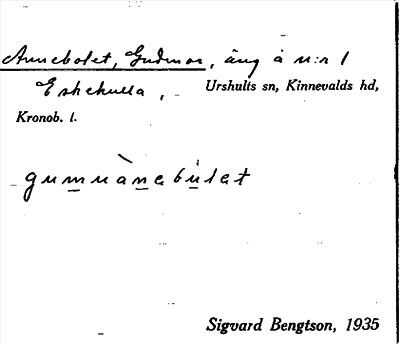 Annebolet, Gudmos, äng å n:r 1
Eskekulla,
Urshults sn, Kinnevalds hd,
Kronob. l.
gumuànabulat
Sigvard Bengtson, 1935